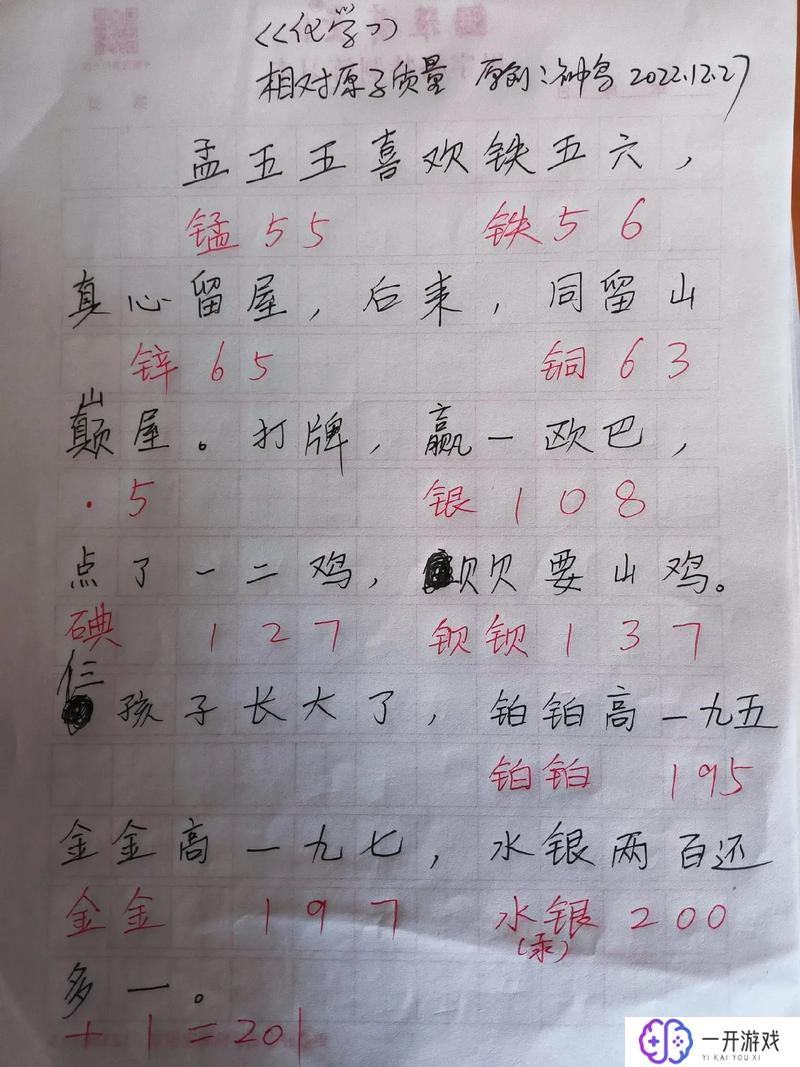 《化学》
相对原子质量 原创:神鸟 2022.12.27
孟五五喜欢铁五六,
锰55 铁56
真心留屋,后来,同留山
锌65 铜63
巅屋。打牌,赢一欧巴,
.5 银108
点了一二鸡,钡贝要山鸡。
碘 127 钡钡137
仨孩子长大了,铂铂高一九五
铂铂 195
金金高一九七,水银两百还
金金 197 水银200
(汞)
多一。
+1=201
一开游戏
YI KAI YOU XI